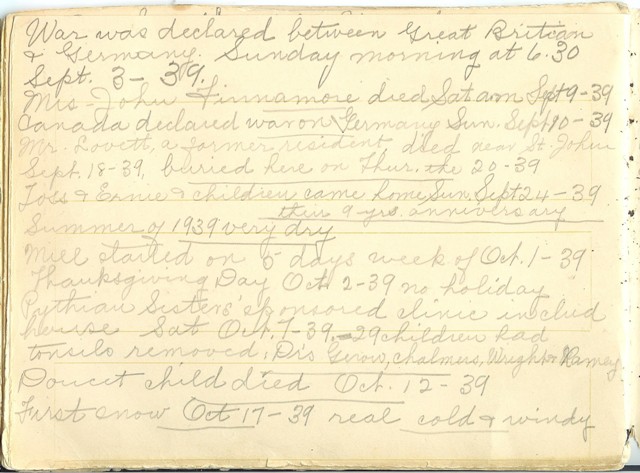 War was declared between Great Britian
& Germany. Sunday morning at 6.30
Sept. 3 - 39.
Mrs - John Finnamore died Sat am Sept 9 - 39
Canada declared war on Germany Sun. Sept 10 - 39
Mr. Lovett, a former resident, died near St. John
Sept. 18-39, buried here on Thur. the 20-39
& Ernie & children came home Sun. Sept 24 - 39
their 9-yrs. anniversary
Summer of 1939 very dry
Mill started on 5 days week of Oct. 1 - 39
Thanksgiving Day Oct 2-39 no holiday
Pythian Sisters' sponsored clinic in club
house Sat Oct. 7-39. - 29 children had
tonsils removed: Drs Chalmers, Wright & Ramey
Doucet child died Oct. 12 - 39
First snow Oct 17 - 39 real cold & windy